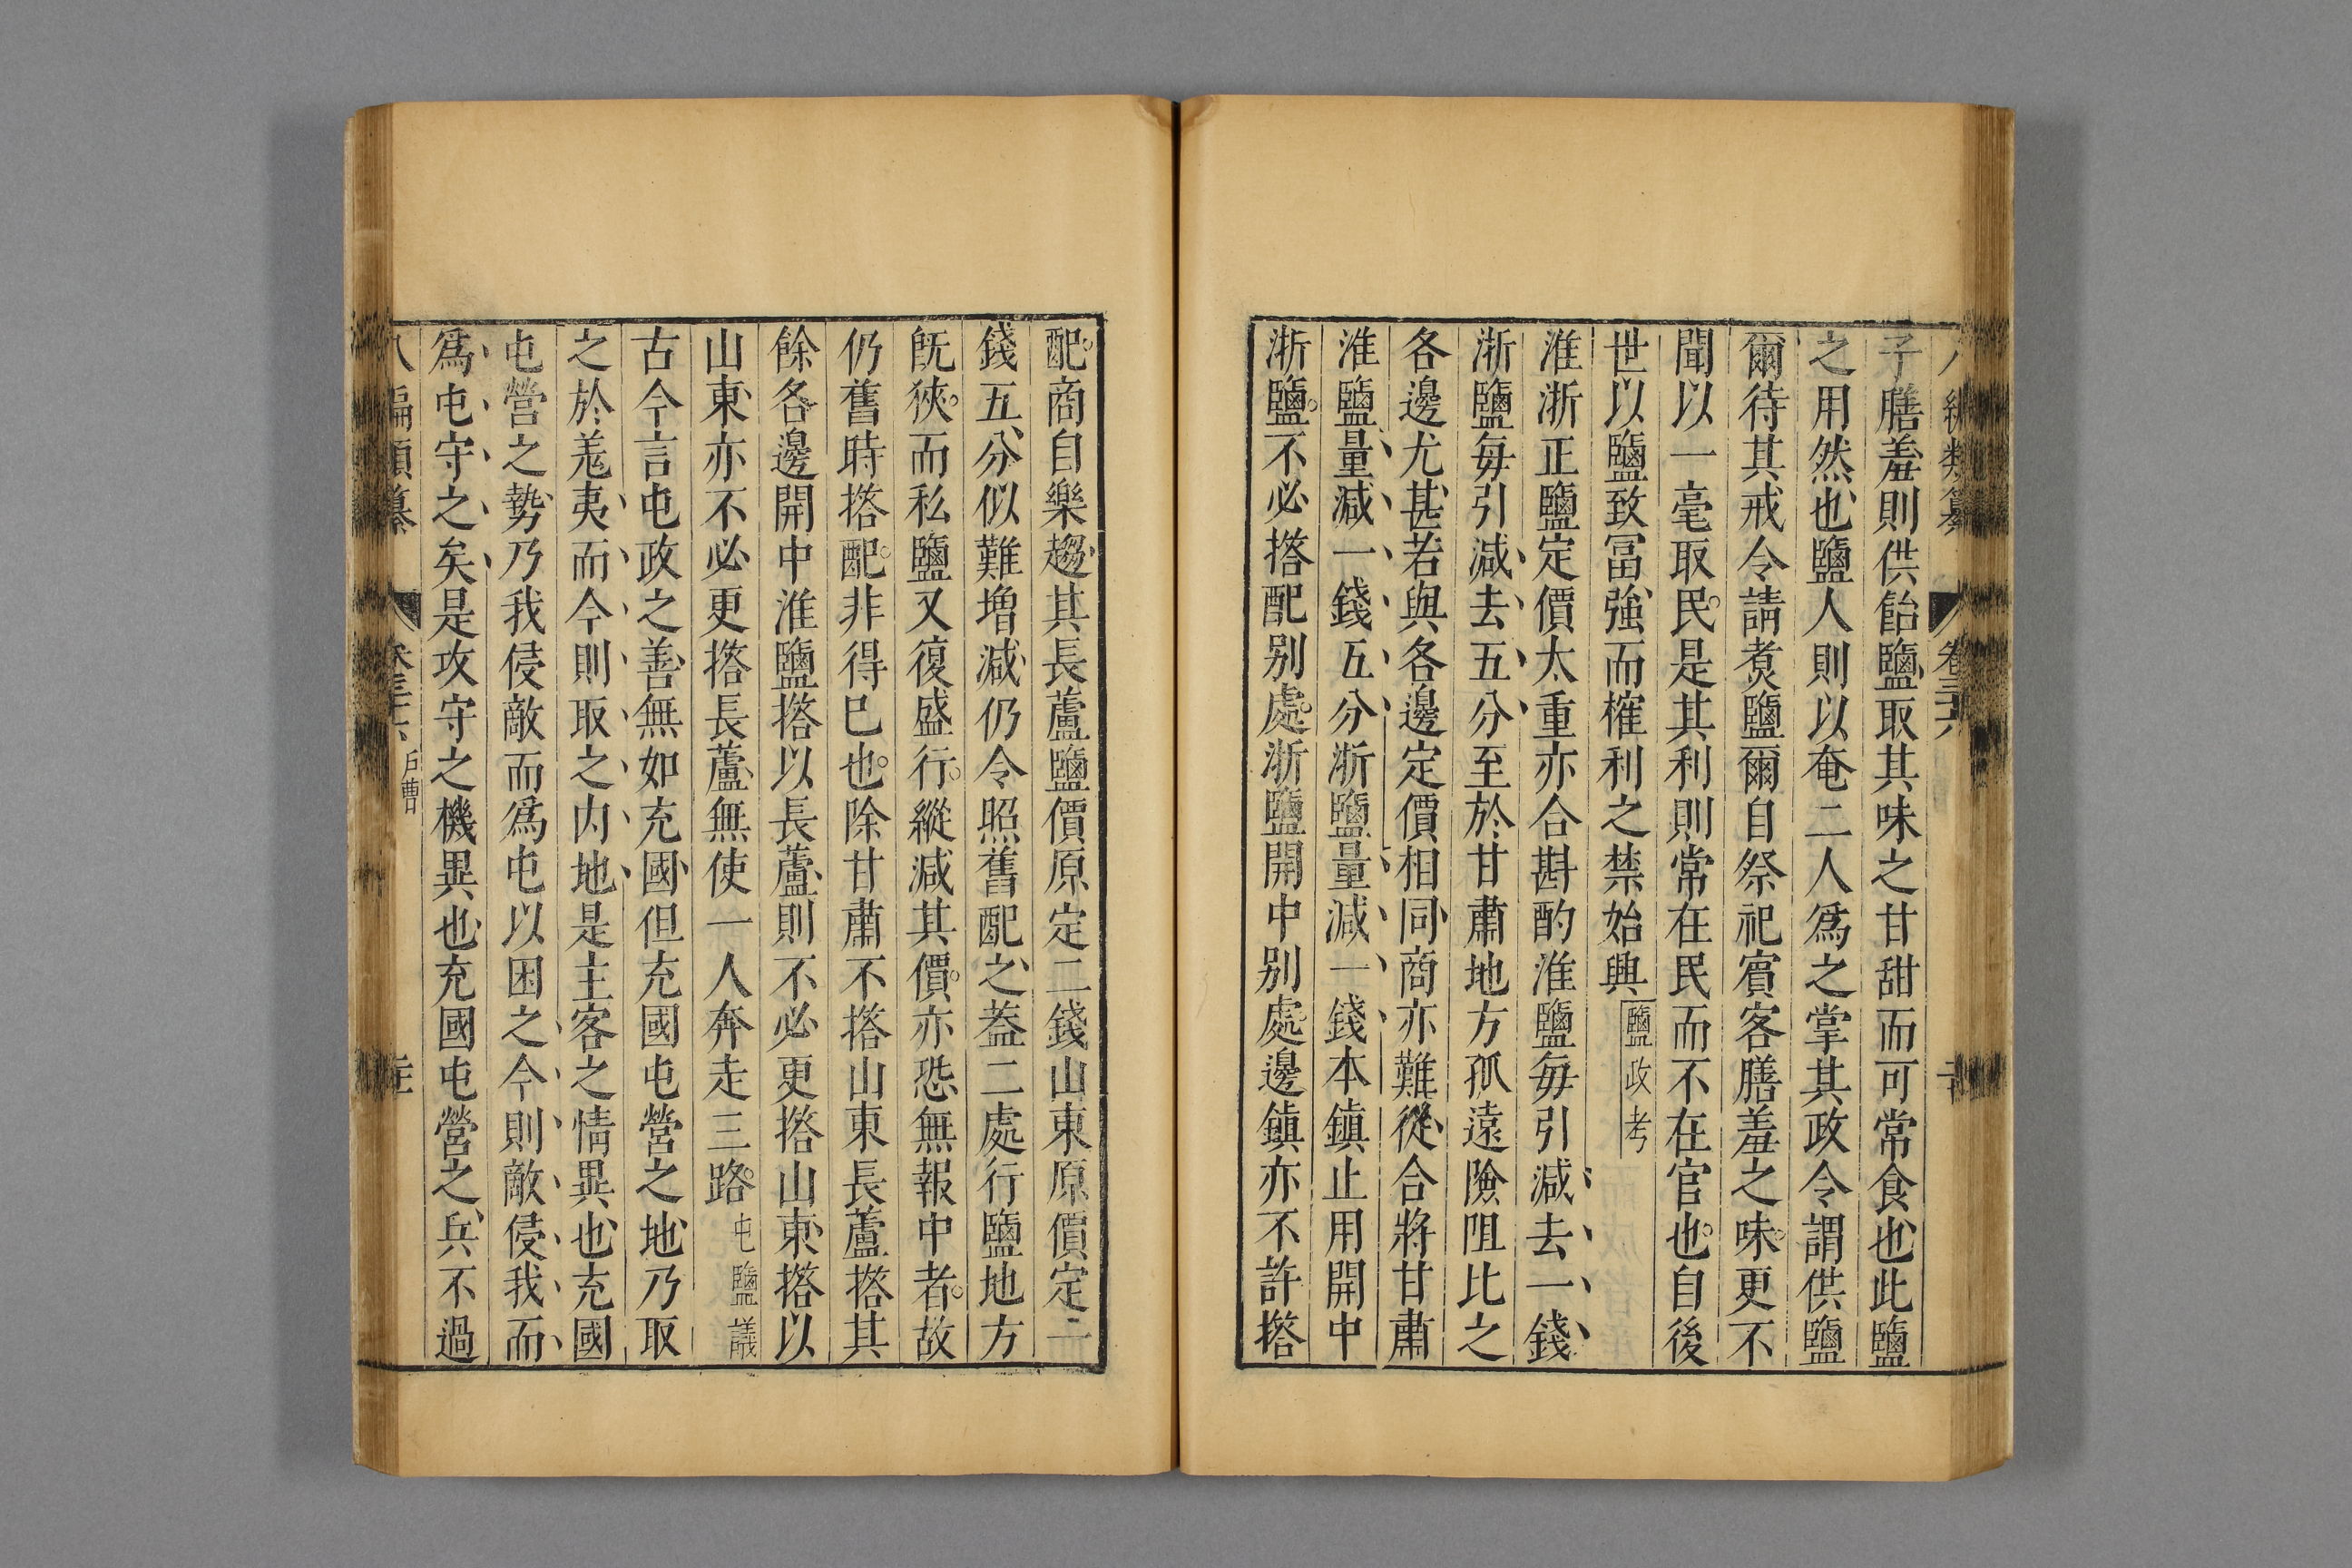 八編類纂 卷三六
子膳羞則供飴鹽取其味之甘甜而可常食也此鹽
之用然也鹽人則以奄二人爲之掌其政令謂供鹽
爾待其戒令請煮鹽爾自祭祀賓客膳羞之味更不
聞以一毫取民是其利則常在民而不在官也自後
世以鹽致冨強而榷利之禁始興 鹽政考
淮浙正鹽定價太重亦合斟酌淮鹽每引減去一錢
浙鹽每引減去五分至於甘肅地方孤遠險阻比之
各邊尤甚若與各邊定價相同商亦難從合將甘肅
淮鹽量減一錢五分浙鹽量減一錢本鎮止用開中
浙鹽不必搭配別處浙鹽開中別處邊鎮亦不許搭
配商自樂趨其長蘆鹽價原定二錢山東原價定一
錢五分似難增減仍令照舊配之蓋二處行鹽地方
旣狹而私鹽又復盛行縱減其價亦恐無報中者故
仍舊時搭配非得已也除甘肅不搭山東長蘆搭其
餘各邊開中淮鹽搭以長蘆則不必更搭山東搭以
山東亦不必更搭長蘆無使一人奔走三路 屯鹽議
古今言屯政之善無如充國但充國屯營之地乃取
之於羗夷而今則取之内地是主客之情異也充國
屯營之勢乃我侵敵而爲屯以困之今則敵侵我而
爲屯守之矣是攻守之機異也充國屯營之兵不過
八編類纂 卷三六 戶曹